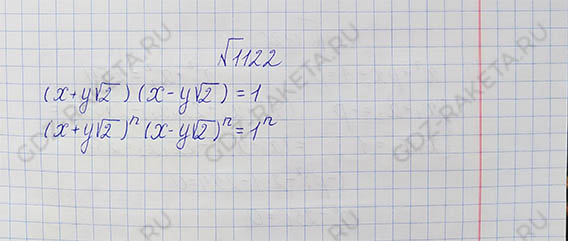 √1122
(x+y√2)(x-y√2)=1
(x+y√2)ⁿ(x-y√2)ⁿ=1ⁿ
GDZ-RAKETA.RU
GDZ-RAKETA.RU